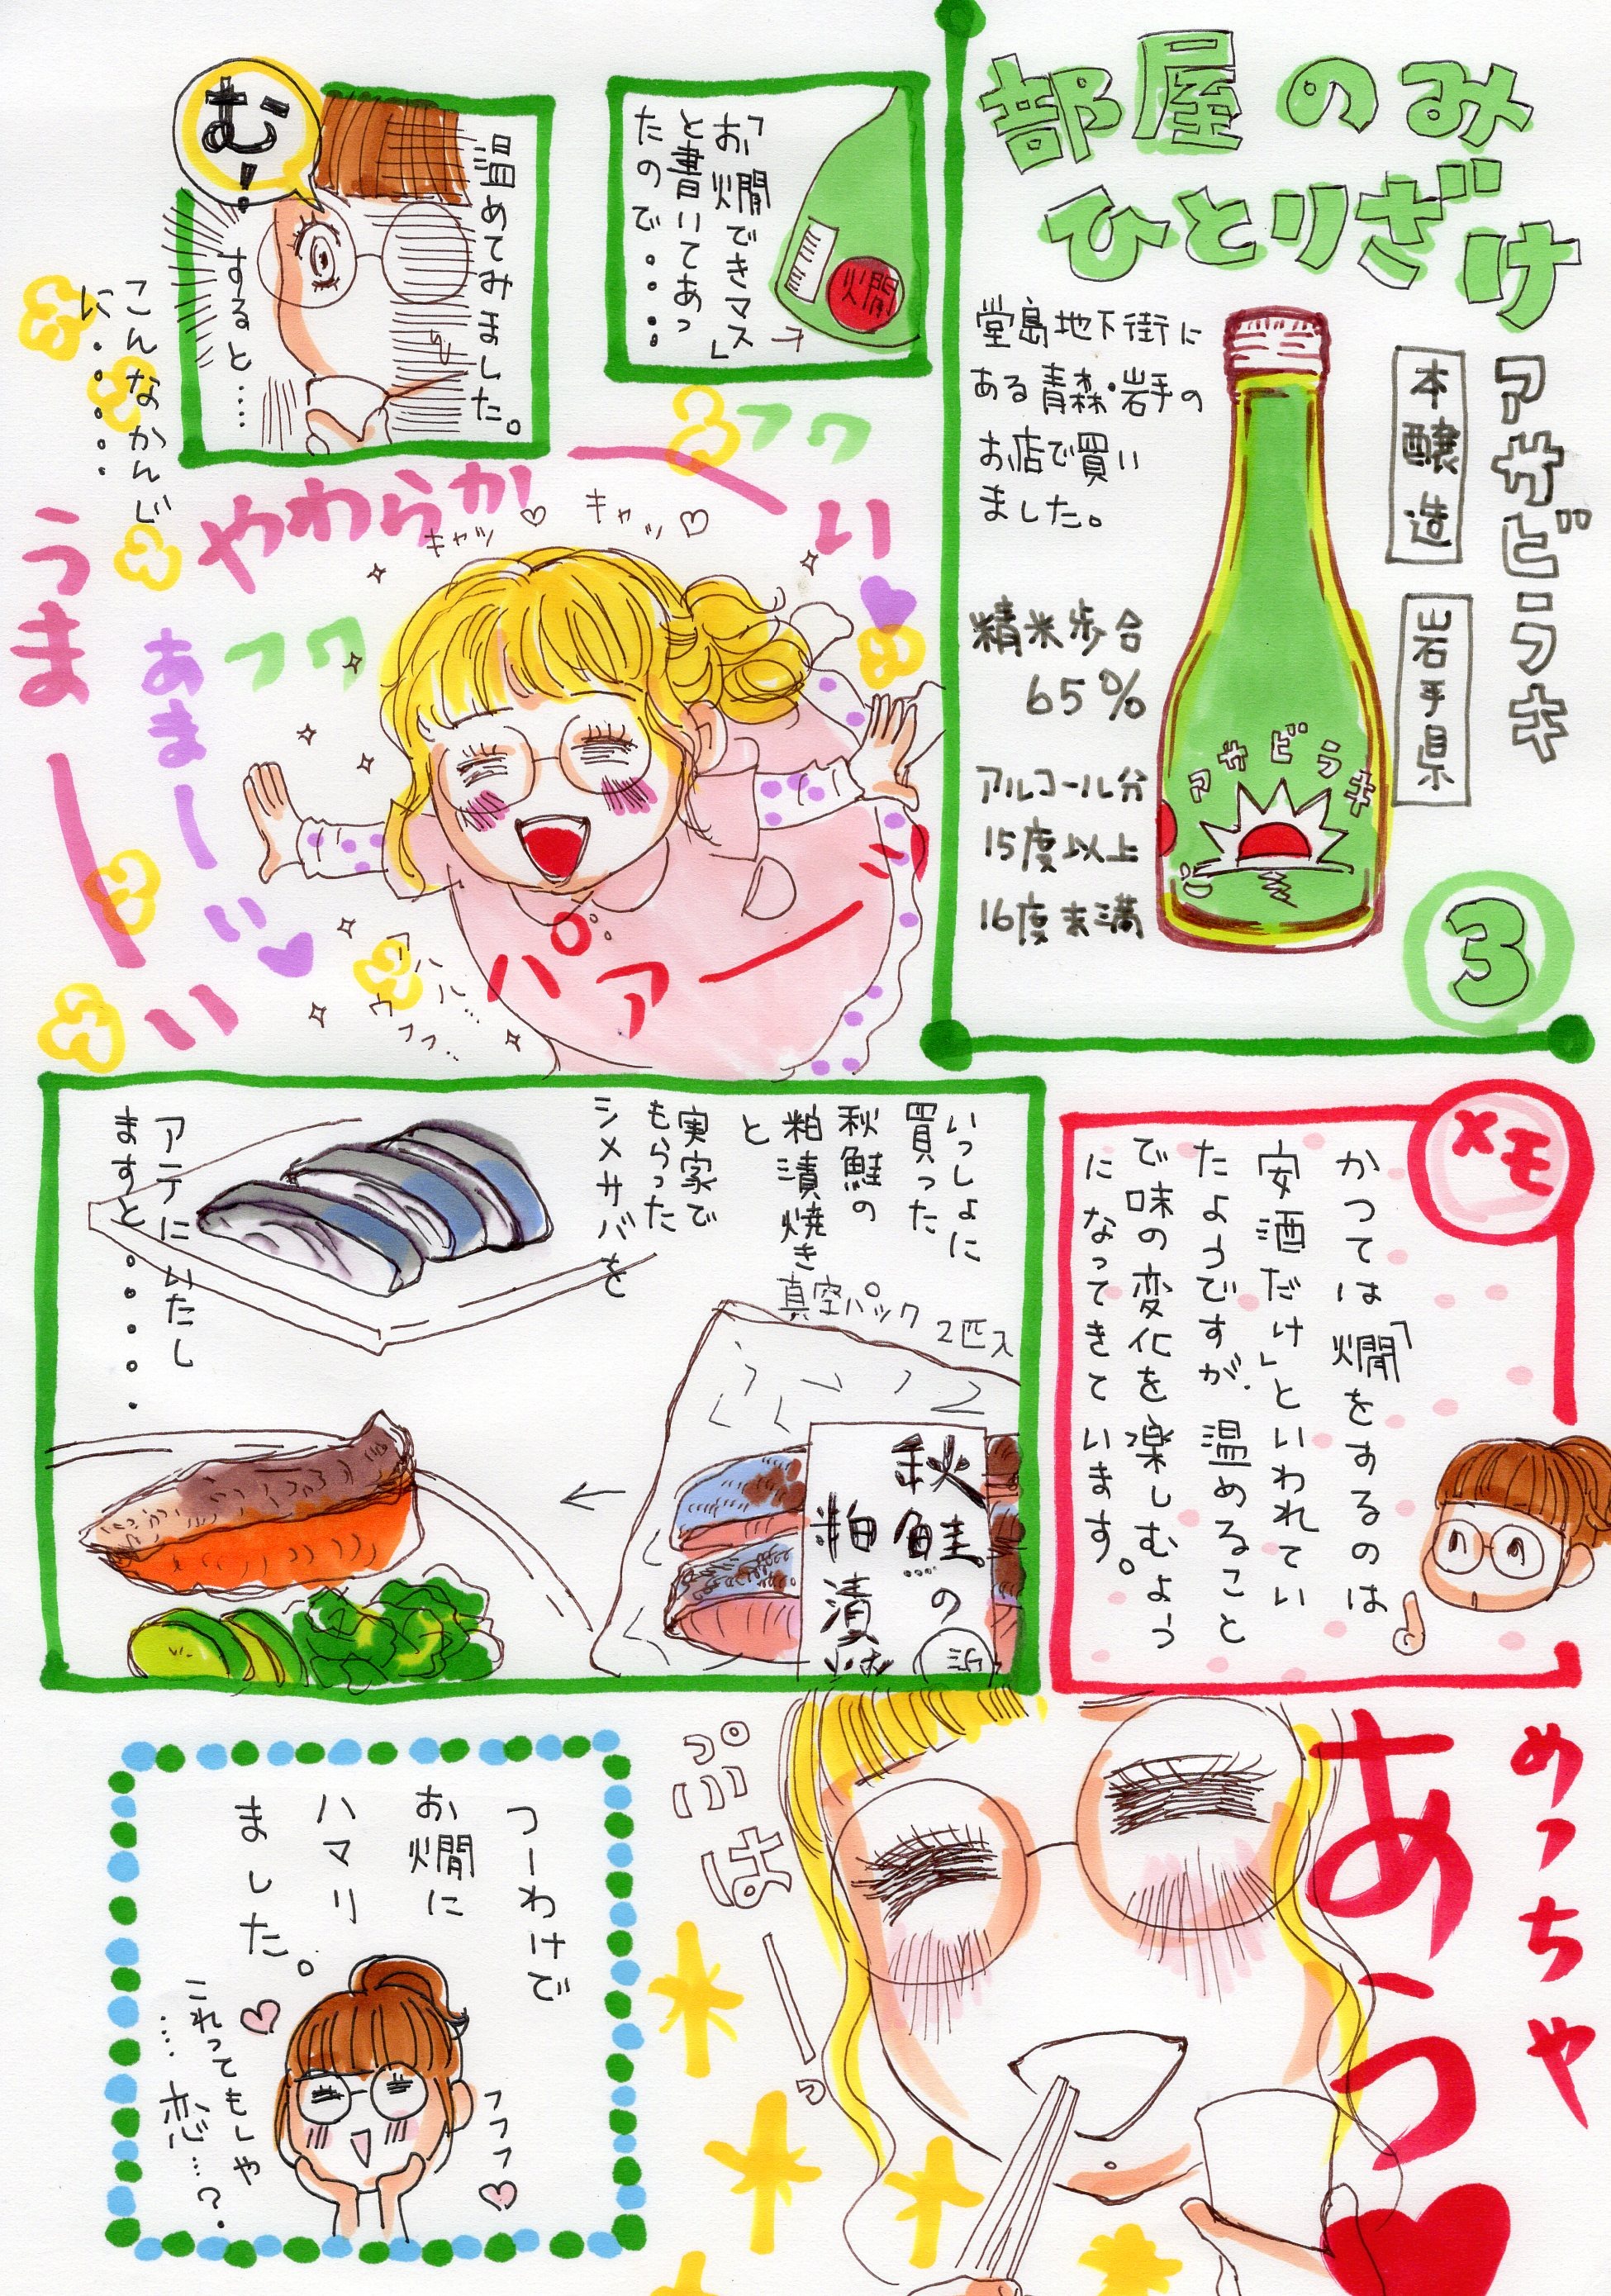 部屋のみ
ひとりざけ
アサビラキ
本醸造
岩手県
堂島地下街に
ある青森・岩手の
お店で買い
ました。
精米歩合
65%
アルコール分
15度以上
16度未満
アサビラキ
3
「お燗でできマス」
と書いてあっ
たので・・・・
燗
温めてみました。
む!
すると・・・・
こんなかんじ
に・・・・・
フワ
やわらかーい
キャッ
キャッ
うまーい
フワ
あまーい
パァーッ
ハハハ・・・
ウフフ・・
メモ
かつては「燗をするのは
安酒だけ」といわれてい
たようですが、温めること
で味の変化を楽しむよう
になってきています。
いっしょに
買った
秋鮭の
粕漬焼き
と
実家で
もらった
シメサバを
真空パック
2匹入
秋鮭の
粕漬
アテにいたし
ますと・・・・・
めっちゃ
あうっ
ぷはーっ
つーわけで
お燗に
ハマリ
ました。
フフフ
これってもしや
・・・・恋・・・?